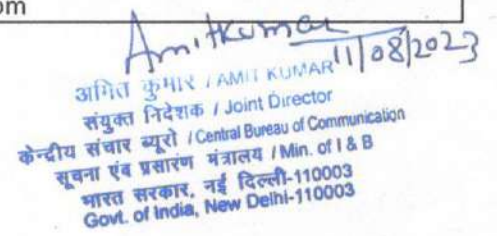 om
Amitkumar
11/08/2023
अमित कुमार / AMIT KUMAR
संयुक्त निदेशक / Joint Director
केन्द्रीय संचार ब्यूरो / Central Bureau of Communication
सूचना एंव प्रसारण मंत्रालय / Min. of I & B
भारत सरकार, नई दिल्ली-110003
Govt. of India, New Delhi-110003